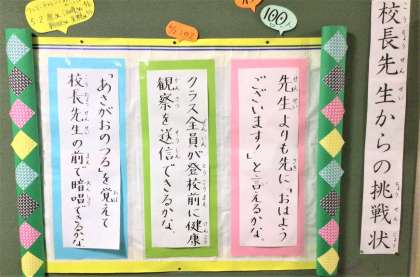 校長先生からの挑戦状
先生よりも先に「おはよう
ございます!」と言えるかな。
クラス全員が登校前に健康
観察を送信できるかな。
「あさがおのつる」を覚えて
校長先生の前で暗唱できるかな
100